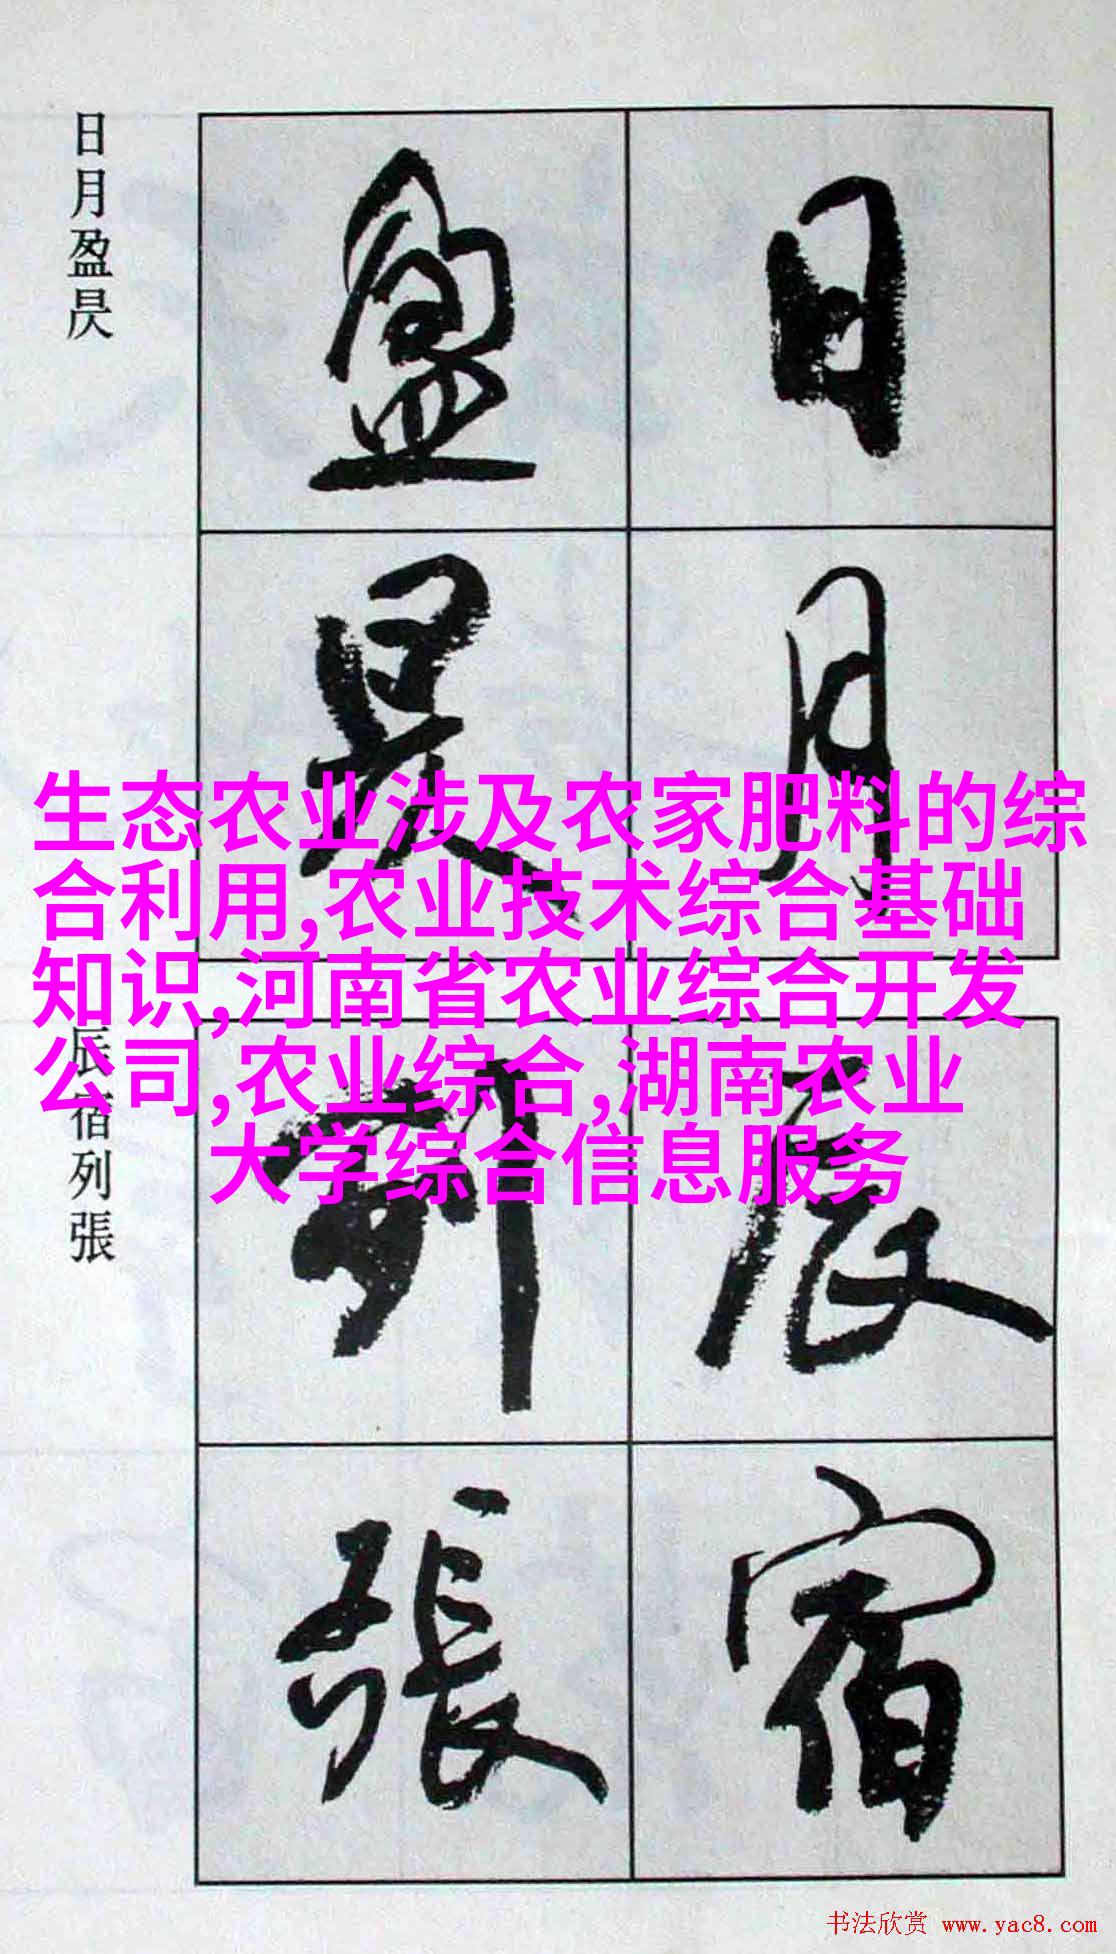 日月盈昃
日月
盈昃
生态农业涉及农家肥料的综
合利用,农业技术综合基础
知识,河南省农业综合开发
公司,农业综合,湖南农业
大学综合信息服务
辰宿列張
辰宿
列張
书法欣赏 www.yac8.com